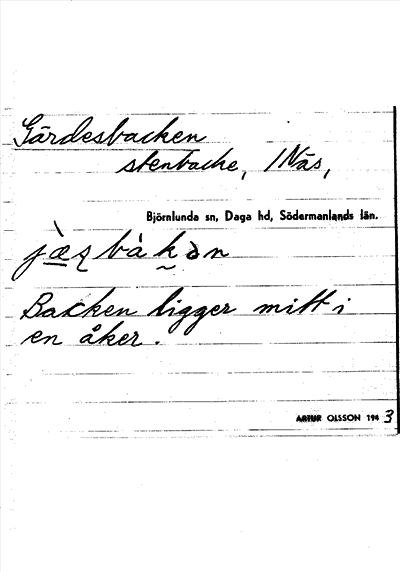 Gärdesbacken
stenbacke, 1 Näs,
Björnlunda sn, Daga hd, Södermanlands län.
Backen ligger mitt i
en åker.
ARTUR OLSSON 1943